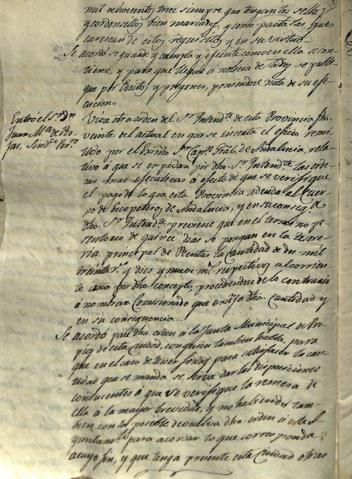 mil ochocientos trece siempre que tengan los sellos
y cordoncillos bien marcados, y como
carecieren de estos requisitos y en su virtud
Se acordó se guarde y cumpla y egecute como en ella se con-
tiene, y para que llegue a noticia de todos se publi-
que por Edictos y pregones, poniendose nota de su ege-
cucion
Entró el Sr. Dn.
Juan Ma. de Ro-
jas, Sindo.
Viose otra orden del Sr. Intendte. de esta Provincia fha
veinte del actual en que se inserta el oficio remi-
tido por el Exmo. Sr. Capn. Gral. de Andalucia, re-
lativo a que se expidan por dho. Sr. Intendte. las orde-
nes mas efectivas a efecto de que se verifique
el pago de lo que esta Provincia adeuda al Cuer-
po de Escopeteros de Andalucia, y en su conseqa.
dho. Sr. Intendte. previene que en el termino pe-
rentorio de quince dias se pongan en la Tesore-
ria principal de Rentas la cantidad de dos mil
treinta rs. y diez y nueve mrs. respectivos al corrien-
te año por dho. concepto, procediendose de lo contrario
a nombrar Comisionado que exija dha. cantidad y
en su consequencia
Se acordó pase dha. orden a la Junta Municipal de Pro-
pios de esta ciudad, como tiene hecha, para
que en el caso de tener fondos para satisfacer la can-
tidad que se manda se sirva dar las disposiciones
conducentes a que se verifique la remesa de
ella a la mayor brevedad, y no habiendolos tam-
bien con la posible devuelva dha. orden a este A-
yuntamto. para acordar lo que corresponda
a cuyo fin, y que tenga presente esta Ciudad otras